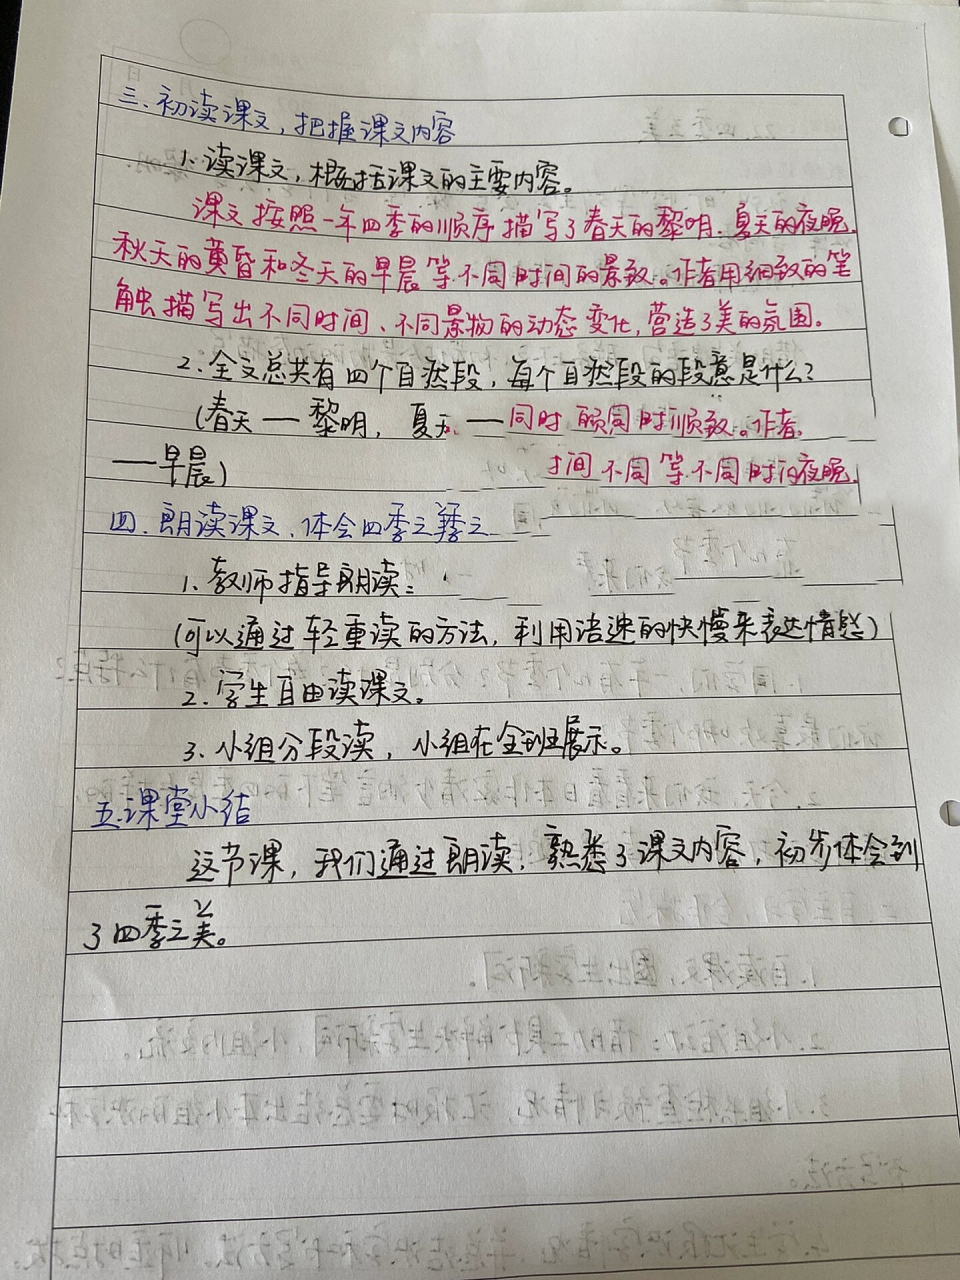 三、初读课文，把握课文内容
1、读课文，概括课文的主要内容。
课文按照一年四季的顺序描写了春天的黎明、夏天的夜晚、
秋天的黄昏和冬天的早晨等不同时间的景致。作者用细致的笔
触描写出不同时间、不同景物的动态变化，营造了美的氛围。
2、全文总共有四个自然段，每个自然段的段意是什么？
（春天——黎明，夏天——同时 顾同时顺致。作者
——早晨） 间不同等不同时的夜晚
四、朗读课文，体会四季之
1、教师指导朗读：
（可以通过轻重读的方法，利用语速的快慢来表达情感）
2、学生自由读课文。
3、小组分段读，小组在全班展示。
五、课堂小结
这节课，我们通过朗读，熟悉了课文内容，初步体会到
了四季之美。